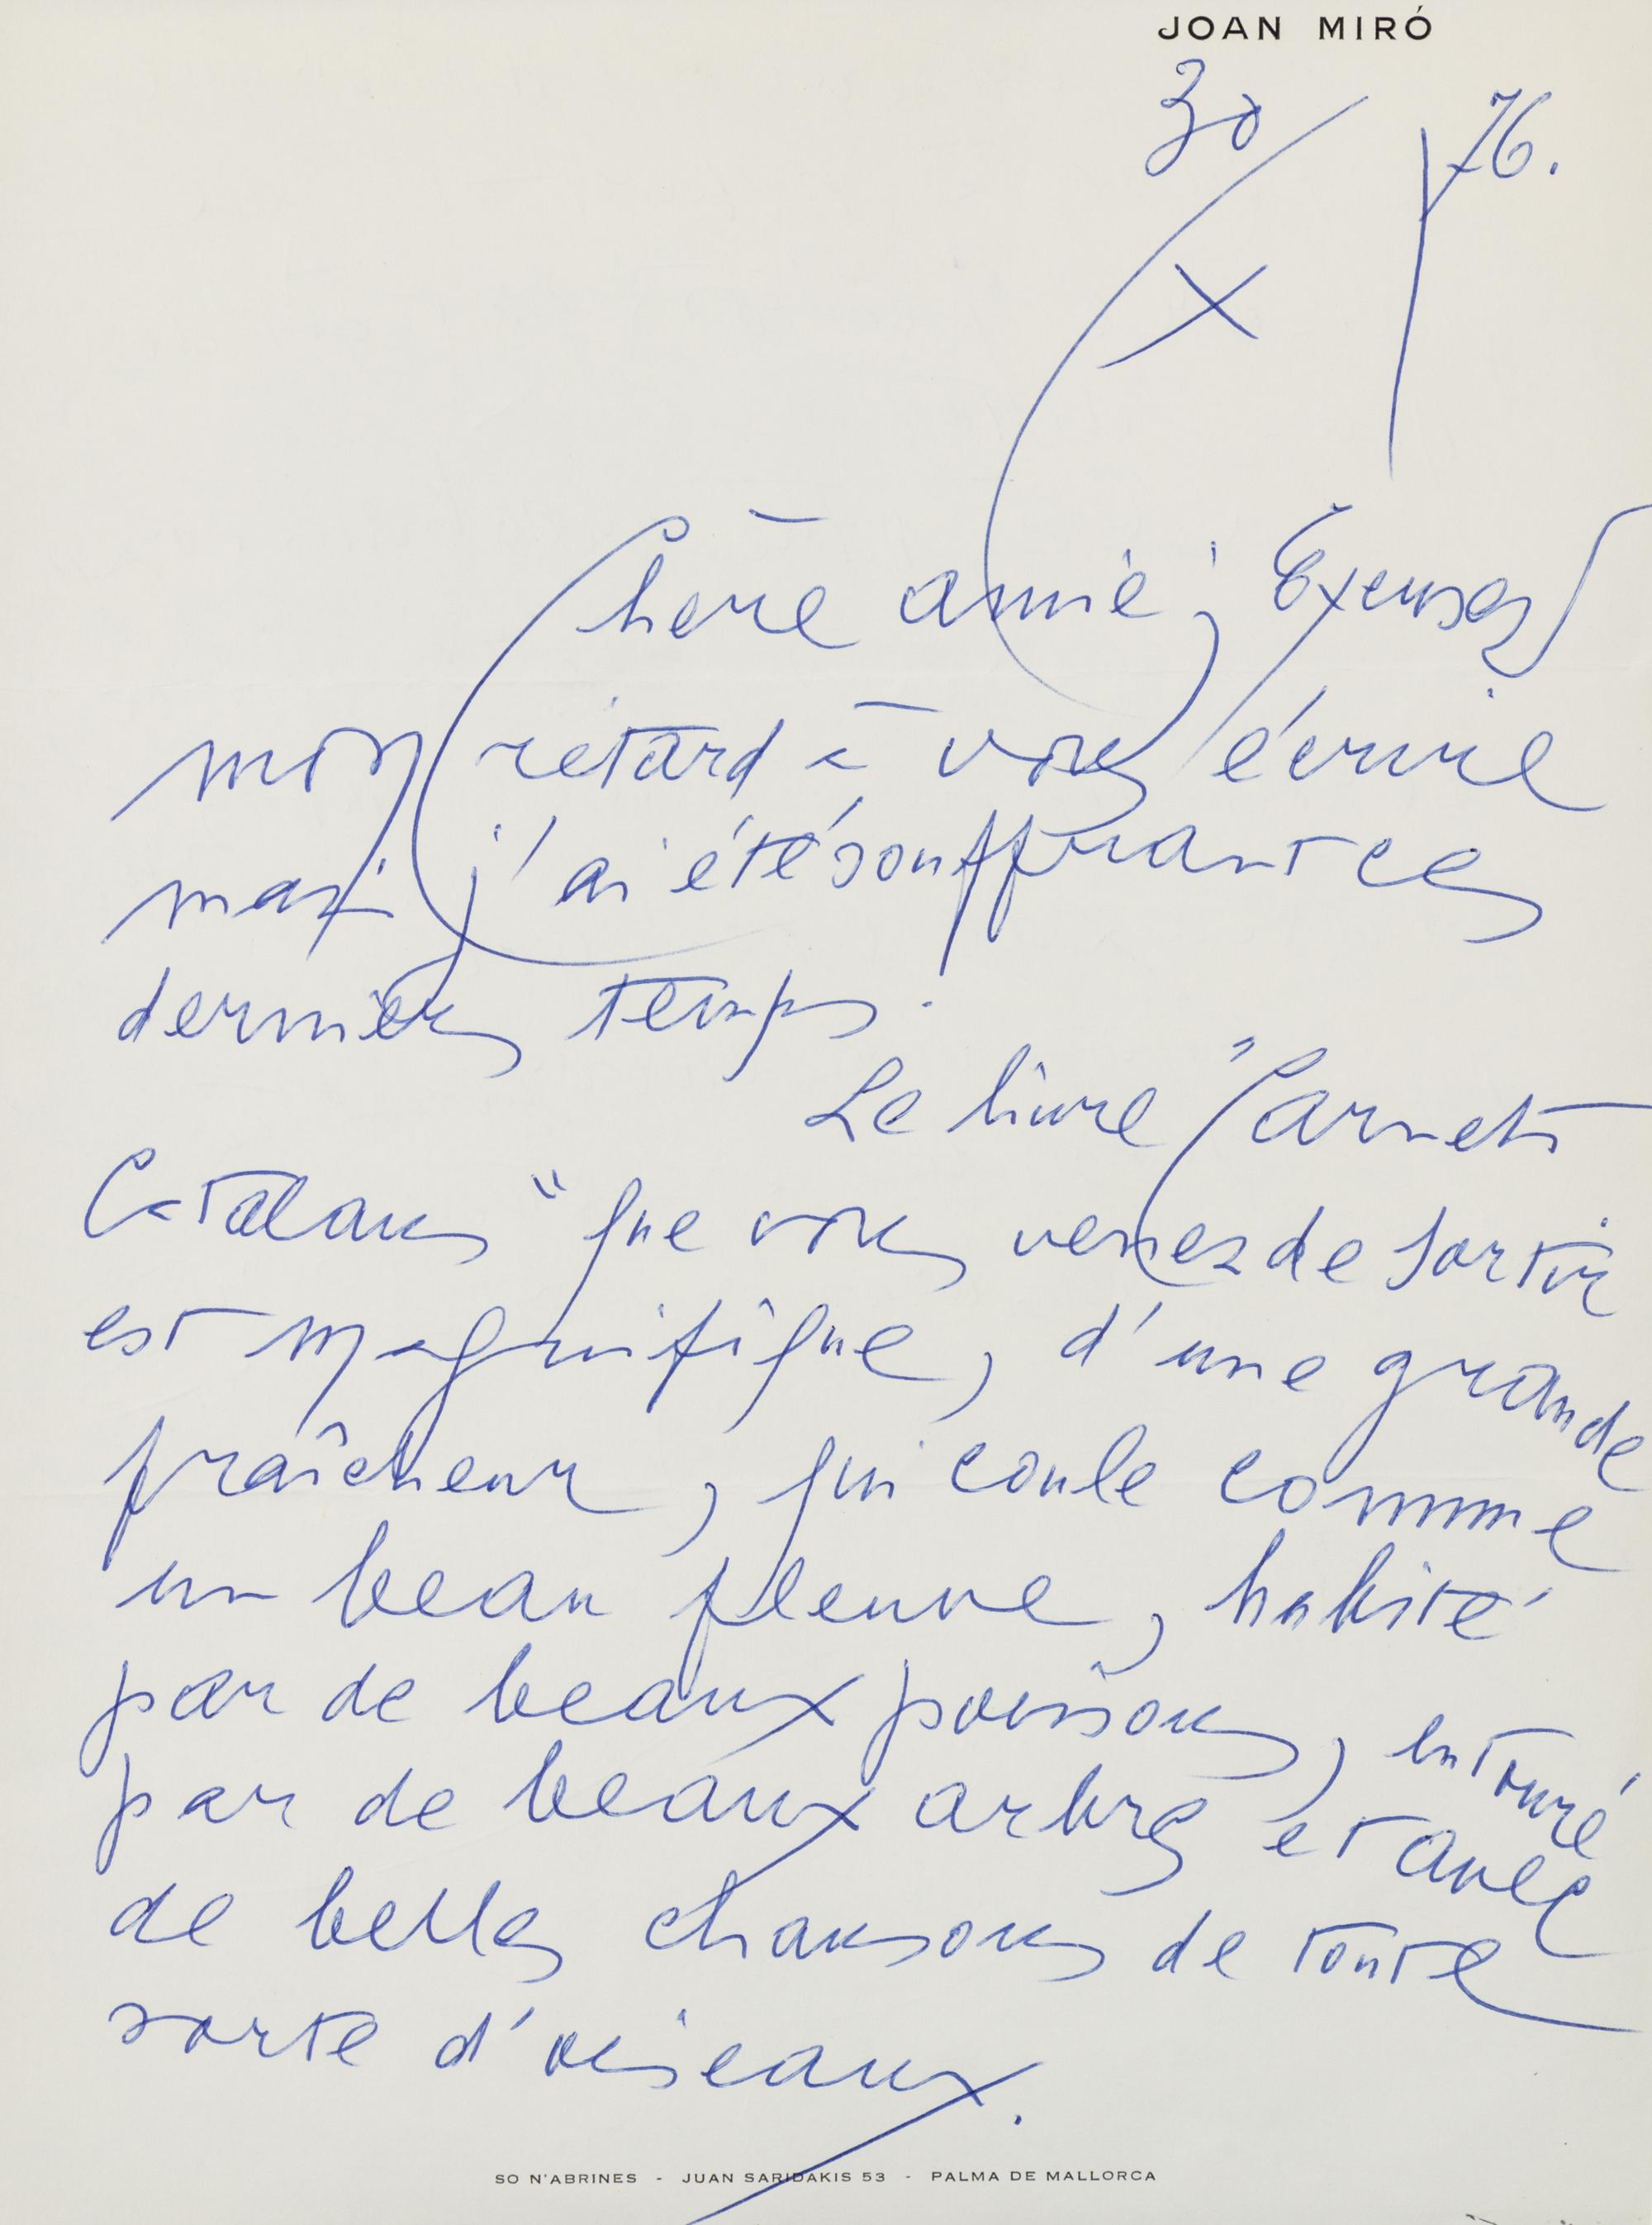 JOAN MIRÓ
30/X/76.
Chère amie ; Excusez
mon retard à vous écrire
mais j'ai été souffrant ces
derniers temps.
Le livre "Carnets
Catalans" que vous venez de sortir
est magnifique, d'une grande
fraîcheur, qui coule comme
un beau fleuve, habité
par de beaux poissons, entouré
par de beaux arbres et avec
de belles chansons de toute
sorte d'oiseaux.
SO N'ABRINES - JUAN SARIDAKIS 53 - PALMA DE MALLORCA